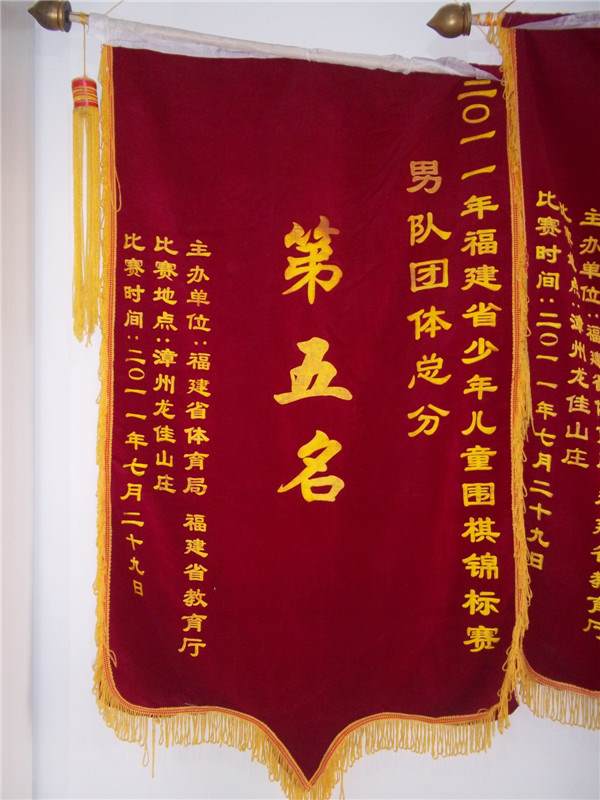 二〇一一年福建省少年儿童围棋锦标赛
男队团体总分
第五名
主办单位:福建省体育局 福建省教育厅
比赛地点:漳州龙佳山庄
比赛时间:二〇一一年七月二十九日
主办单位:福建省体育
比赛地点:漳州龙佳山庄
比赛时间:二〇一一年七月二十九日